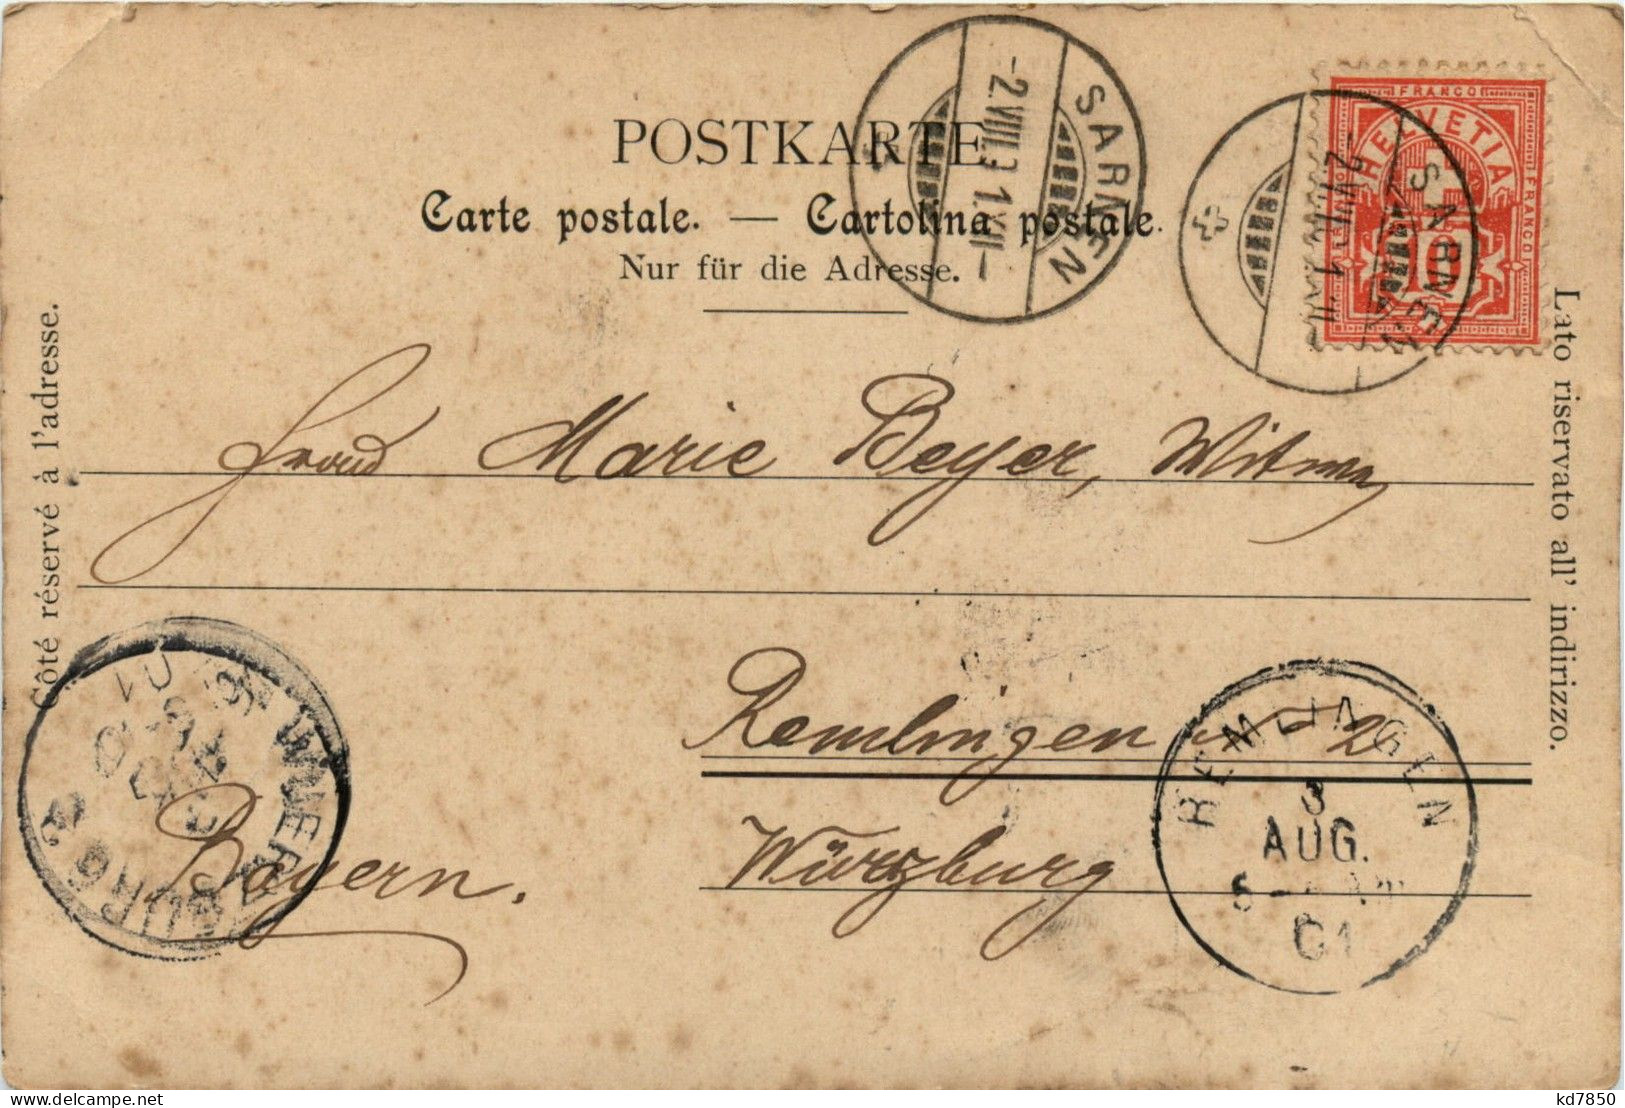 POSTKARTE
Carte postale. — Cartolina postale.
Nur für die Adresse.
SARNEN
-2.VIII.01.XII-
SARNEN
FRANCO
HELVETIA
FRANCO
10
Côté réservé à l'adresse.
Lato riservato all' indirizzo.
Marie Beyer,
Remlingen
Würzburg
Bayern.
REMLINGEN
3
AUG.
01
WUERZBURG 2
01